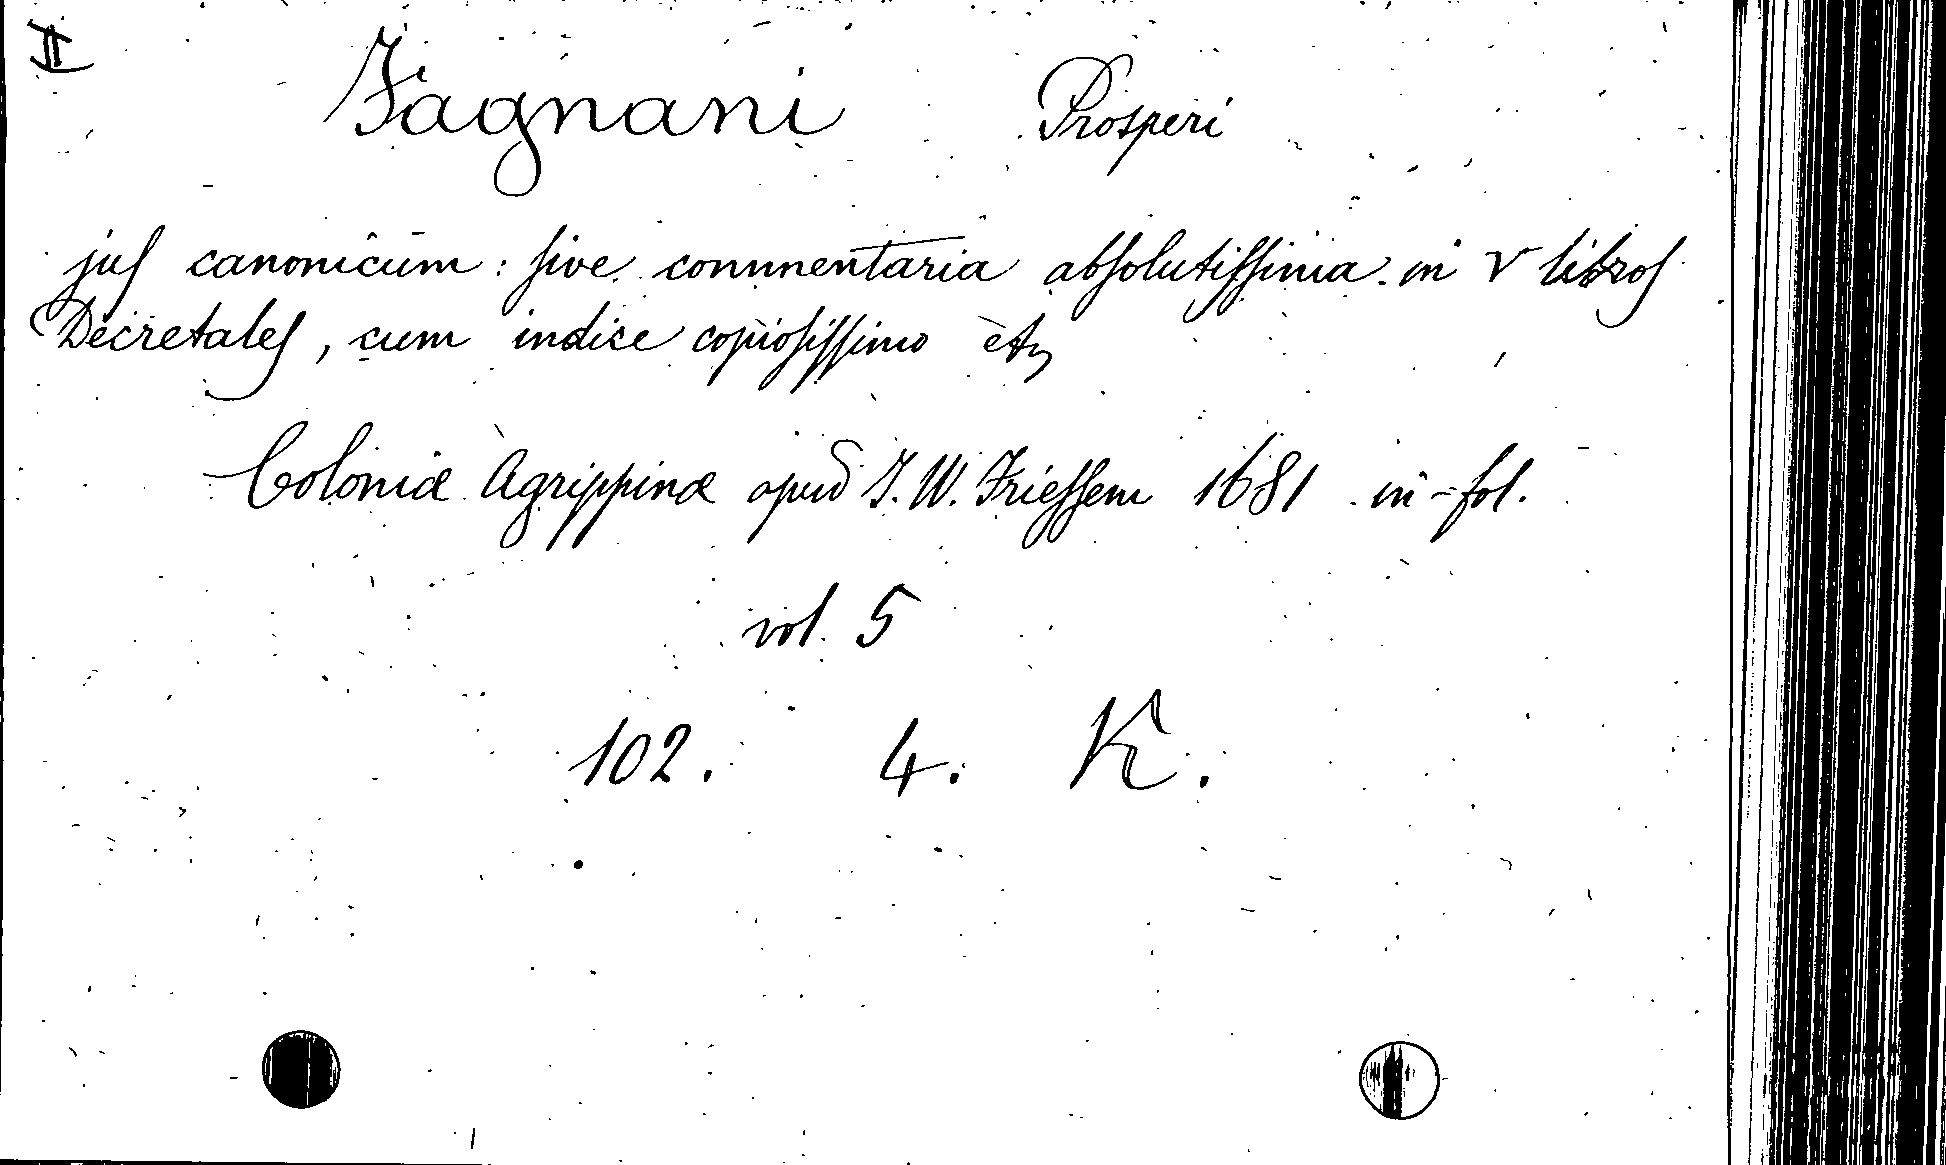 II
Fagnani Prosperi
juſ canonicum: ſive commentaria abſolutiſſima in V libroſ
Decretaleſ, cum indice copioſiſſimo etz
Coloniæ Agrippinæ apud J. W. Frieſſem 1681 in-fol.
vol. 5
102. 4. K.